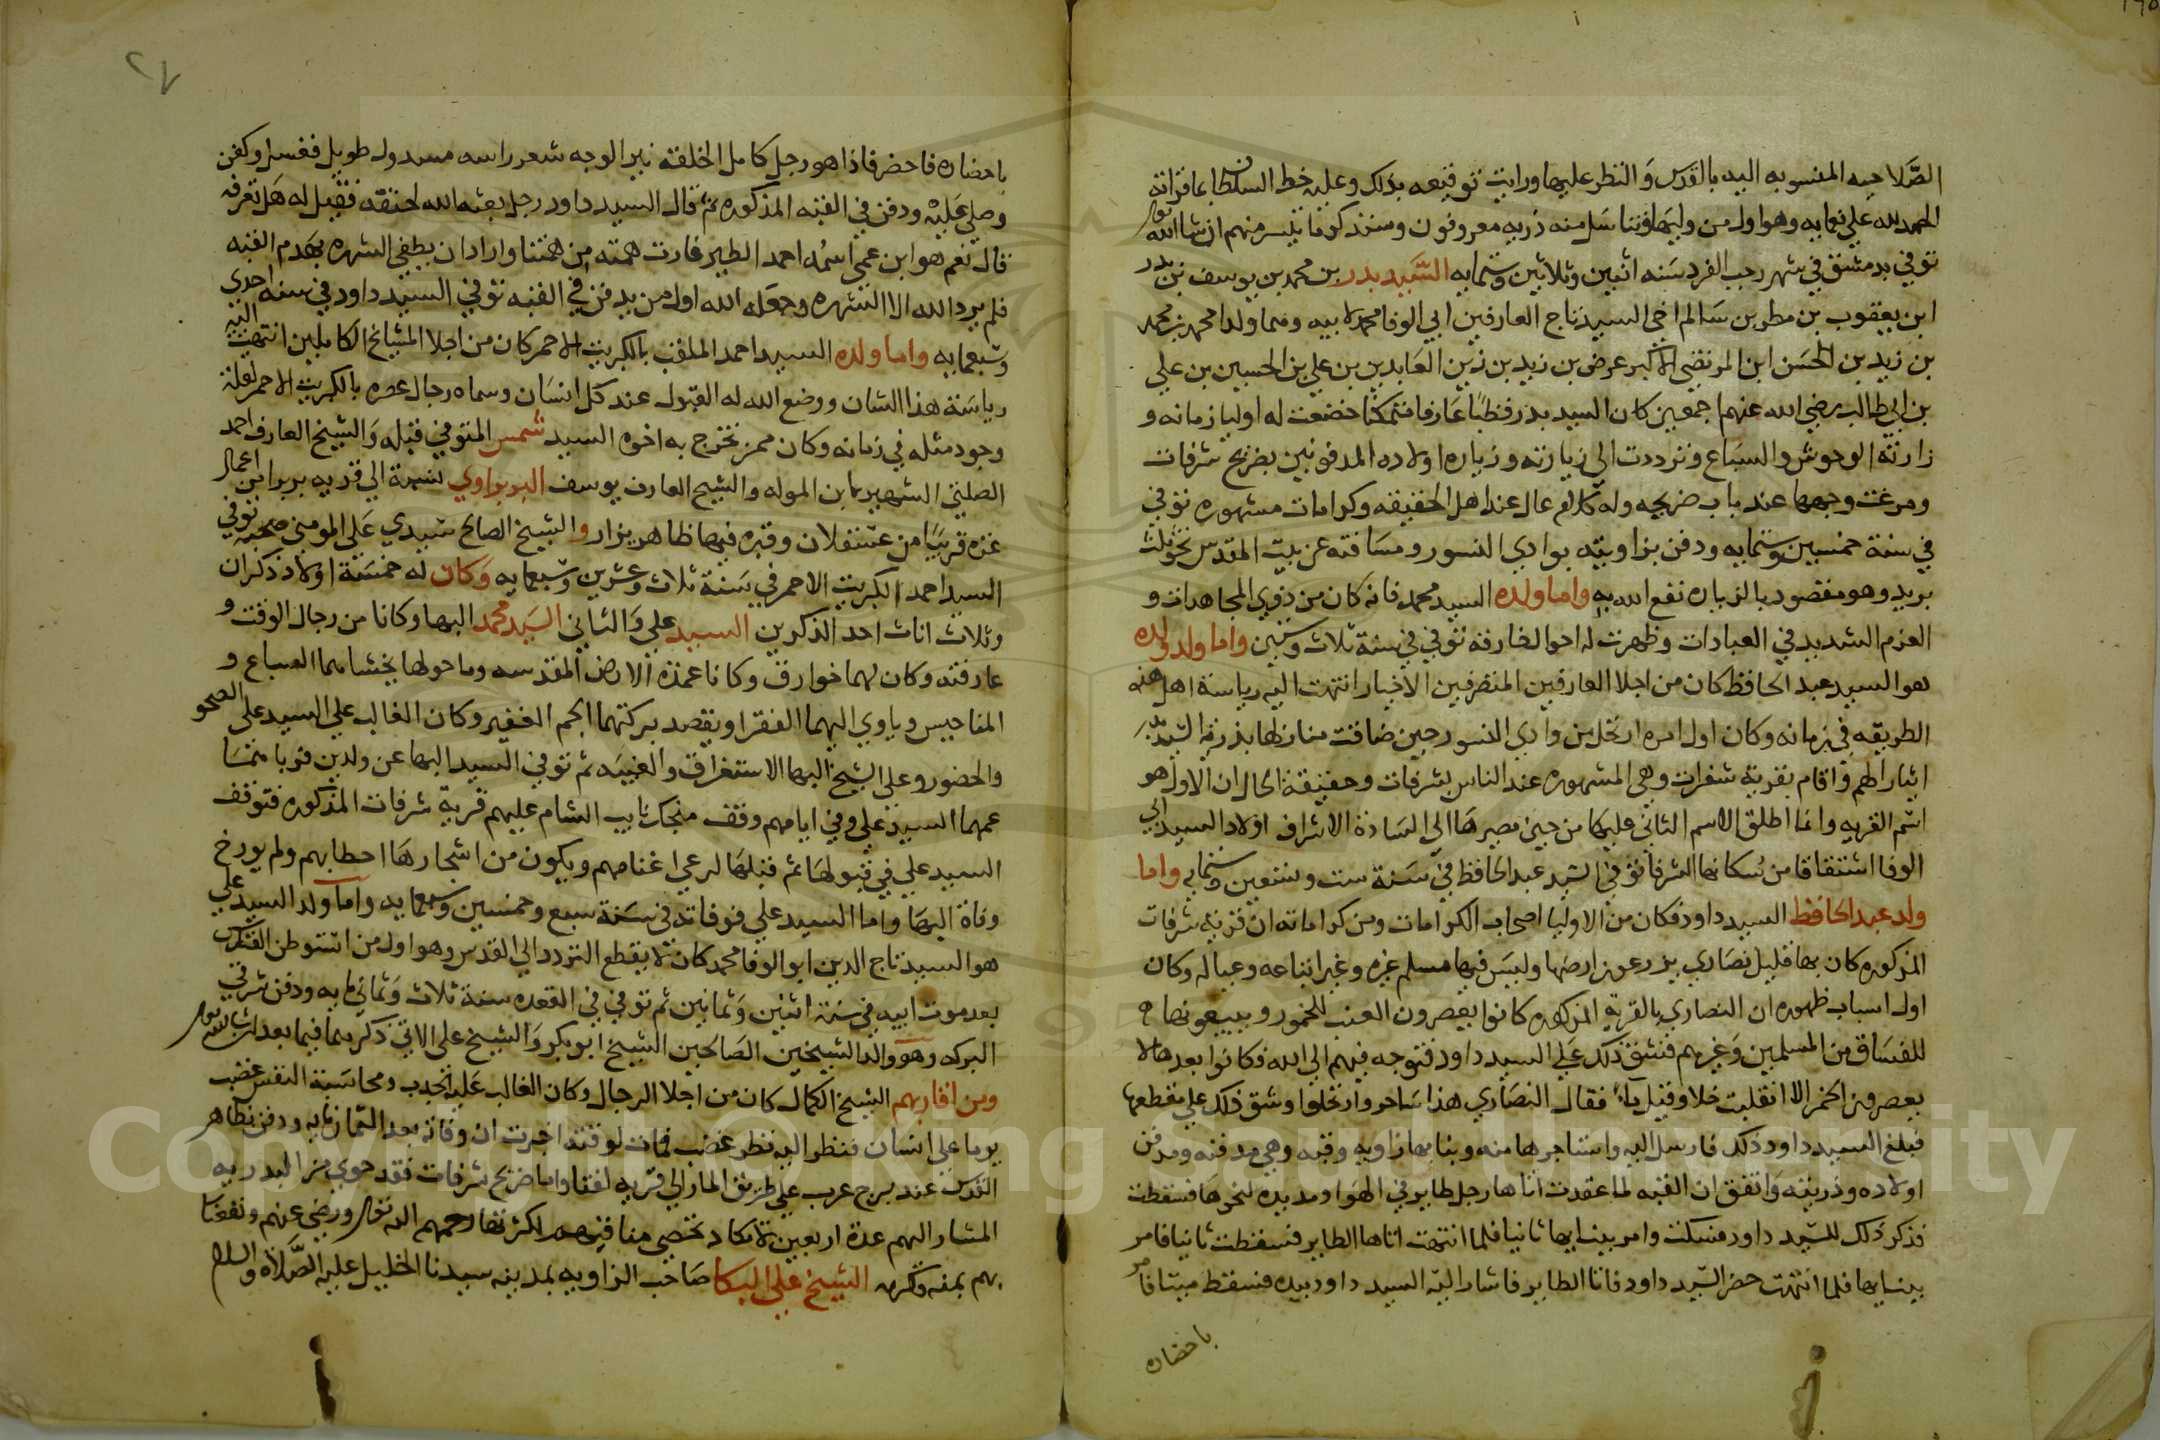 الصلاحيه المنسوبه اليه بالقدس والنظر عليها ورايت توقيعه بذلك وعليه خط السلطان بما قراته
الحمد لله علي نعمايه وهو اول من وليها وتناسل منه ذريه معروفون وسنذكر ما تيسر منهم ان شا الله تعالى
توفي بدمشق في شهر رجب الفرد سنه اثنين وثلاثين وستمايه السيد بدر بن محمد بن يوسف بن بدر
ابن يعقوب بن مطر بن سالم اخي السيد تاج العارفين ابي الوفا محمد لابيه وهما ولدا محمد بن محمد
بن زيد بن الحسن ابن المرتضي الاكبر عرض بن زيد بن زين العابدين بن علي بن الحسين بن علي
بن ابي طالب رضي الله عنهم اجمعين كان السيد بدر قطبا عارفا متمكنا خضعت له اوليا زمانه و
زارته الوحوش والسباع وترددت الي زيارته وزياره اولاده المدفونين بضريح شرفات
ومرغت وجهها عند باب ضريحه وله كلام عال عند اهل الحقيقه وكرامات مشهوره توفي
في سنة خمسين وستمايه ودفن بزاويته بوادي النسور ومسافته عن بيت المقدس نحو ثلث
بريد وهو مقصود بالزياره نفع الله به واما ولده السيد محمد فانه كان من ذوي المجاهدات و
العزم الشديد في العبادات وظهرت له احوال خارقه توفي في سنة ثلاث وستين واما ولد ولده
هو السيد عبد الحافظ كان من اجلا العارفين المتصرفين الاخيار انتهت اليه رياسة اهل هذه
الطريقه في زمانه وكان اول امره ارتحل من وادي النسور حين ضاقت منازلها بذرية السيد بدر
ايثارا لهم واقام بقرية شفرات وهي المشهوره عند الناس بشرفات وحقيقة الحال ان الاول هو
اسم القريه وانما اطلق الاسم الثاني عليها من حين مصيرها الي السادة الاشراف اولاد السيد ابي
الوفا اشتقاقا من سكانها الشرفا توفي السيد عبد الحافظ في سنة ست وتسعين وستمايه واما
ولد عبد الحافظ السيد داود فكان من الاوليا اصحاب الكرامات ومن كراماته ان قرية شرفات
المذكوره كان بها قليل نصاري يزرعون ارضها وليس فيها مسلم غيره وغير اتباعه وعياله وكان
اول اسباب ظهوره ان النصاري بالقرية المذكوره كانوا يعصرون العنب للخمور ويبيعونها
للفساق من المسلمين وغيرهم فشق ذلك علي السيد داود فتوجه فيهم الي الله فكانوا بعدها لا
يعصرون الخمر الا انقلبت خلا وقيل ماء فقال النصاري هذا ساحر وارتحلوا وشق ذلك علي مقطعها
فبلغ السيد داود ذلك فارسل اليه واستاجرها منه وبنا بها زاويه وقبه وهي مدفنه ومدفن
اولاده وذريته واتفق ان القبه لما عقدت اتاها رجل طاير في الهوا ومد يده لنحوها فسقطت
فذكر ذلك للسيد داود فسكت وامر ببنايها ثانيا فلما انتهت اتاها الطاير فسقطت ثانيا فامر
ببنايها فلما انتهت حضر السيد داود فاتا الطاير فاشار اليه السيد داود بيده فسقط ميتا فامر
باحضاره
باحضاره فاحضر فاذا هو رجل كامل الخلقه نير الوجه شعر راسه مسدول طويل فغسل وكفن
وصلي عليه ودفن في القبه المذكوره ثم قال السيد داود رجل بعثه الله لحتفه فقيل له هل تعرفه
قال نعم هو ابن عمي اسمه احمد الطير غارت همته من همتنا واراد ان يطفي الشهره بهدم القبه
فلم يرد الله الا الشهره وجعله الله اول من يدفن في القبه توفي السيد داود في سنه احدي
وسبعمايه واما ولده السيد احمد الملقب بالكبريت الاحمر كان من اجلا المشايخ الكاملين انتهت اليه
رياسة هذا الشان ووضع الله له القبول عند كل انسان وسماه رجال عصره بالكبريت الاحمر لقلة
وجود مثله في زمانه وكان ممن تخرج به اخوه السيد شمس المتوفي قبله والشيخ العارف احمد
الصلتي الشهير بابن الموله والشيخ العارف يوسف البربراوي نسبة الي قريه بربرا من اعمال
غزه قريبا من عسقلان وقبره فيها ظاهر يزار والشيخ الصالح سيدي علي المومني صحبه توفي
السيد احمد الكبريت الاحمر في سنة ثلاث وعشرين وسبعمايه وكان له خمسة اولاد ذكران
وثلاث اناث احد الذكرين السيد علي والثاني السيد محمد البها وكانا من رجال الوقت و
عارفته وكان لهما خوارق وكانا عمدة الارض المقدسه وما حولها يخشاهما السباع و
المناحيس وياوي اليهما الفقرا ويقصد بركتهما الجم الغفير وكان الغالب علي السيد علي الصحو
والحضور وعلي الشيخ البها الاستغراق والغيبه ثم توفي السيد البها عن ولدين فربا منسا
عمهما السيد علي وفي ايامهم وقف منجك نايب الشام عليهم قرية شرفات المذكوره فتوقف
السيد علي في قبولها ثم قبلها لرعي اغنامهم ويكون من اشجارها احطابهم ولم يورخ
وفاة البها واما السيد علي فوفاته في سنة سبع وخمسين وسبعمايه واما ولد السيد علي
هو السيد تاج الدين ابو الوفا محمد كان لا يقطع التردد الي القدس وهو اول من استوطن القدس
بعد موت ابيه في سنة اثنين وثمانين ثم توفي في القعده سنة ثلاث وثمانمايه ودفن شرقي
البركه وهو والد الشيخين الصالحين الشيخ ابو بكر والشيخ علي الاتي ذكرهما فيما بعد ان شا الله تعالى
ومن اقاربهم الشيخ الكمال كان من اجلا الرجال وكان الغالب عليه الجذب ومحاسبة النفس غضب
يوما علي انسان فنظر اليه نظر غضب فمات لوقته اخبرت ان وفاته بعد الثمانمايه ودفن بظاهر
القدس عند برج عرب علي طريق المار الي قريه لفتا واما ضريح شرفات فقد حوي من البدريه
المشار اليهم عدة اربعين لا تكاد تحصي مناقبهم لكثرتها رحمهم الله تعالى ورضي عنهم ونفعنا
بهم بمنه وكرمه الشيخ علي البكا صاحب الزاويه بمدينه سيدنا الخليل عليه الصلاة والسلام